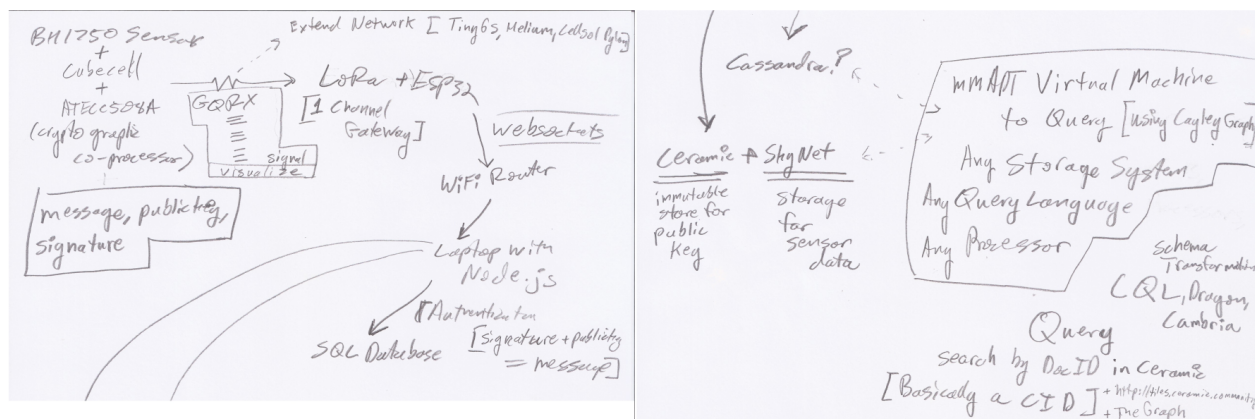 BH1750 Sensor
+
Cubecell
+
ATECC508A
(cryptographic
co-processor)
message, publickey,
signature
GQRX
signal
visualize
Extend Network [TinyGS, Helium, Cellsol
LoRa + ESP32
[1 Channel
Gateway]
websockets
WiFi Router
Laptop with
Node.js
Authentication
[signature + publickey
= message]
SQL Database
Cassandra?
Ceramic + SkyNet
immutable
store for
public
key
storage
for
sensor
data
mmADT Virtual Machine
to Query [using Cayley Graph]
Any Storage System
Any Query Language
Any Processor
Schema
Transformation
CQL, Dragon,
Cambria
Query
search by DocID in Ceramic
[Basically a CID]
+ http://tiles.ceramic.community
+ The Graph